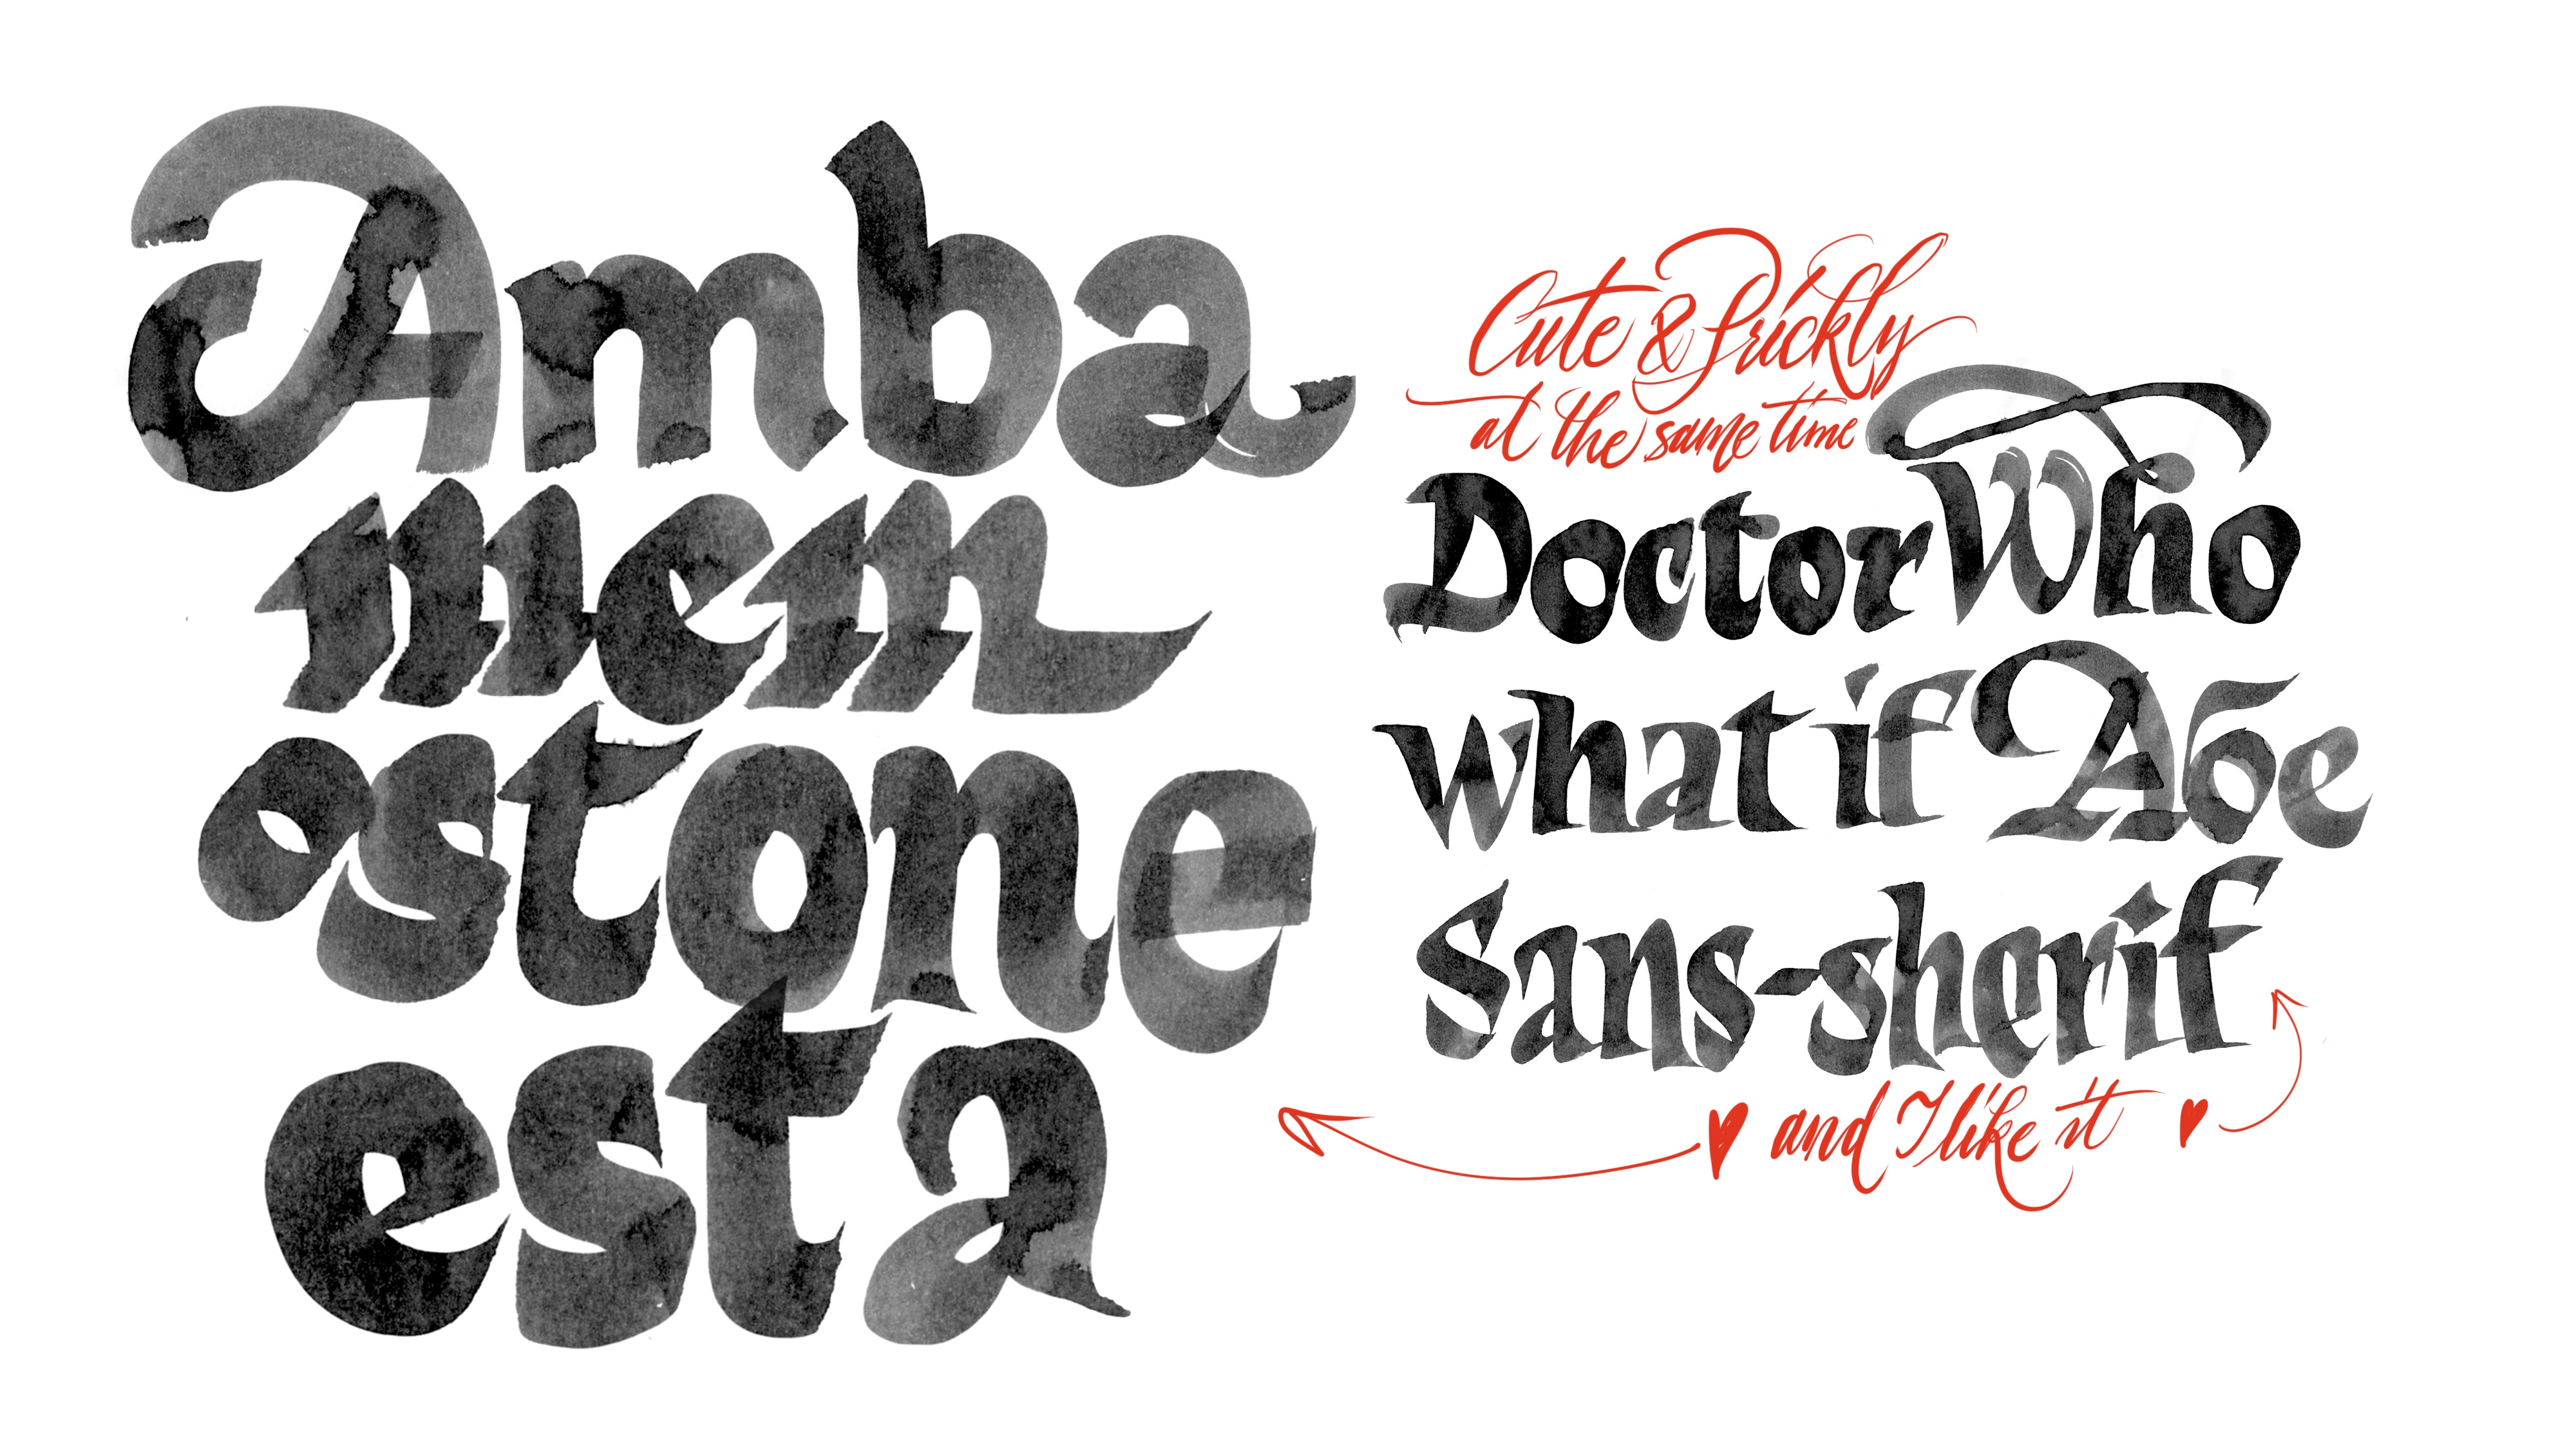 Amba
mem
ostone
esta
Cute & Prickly
at the same time
Doctor Who
what if Абе
Sans-sherif
and I like it